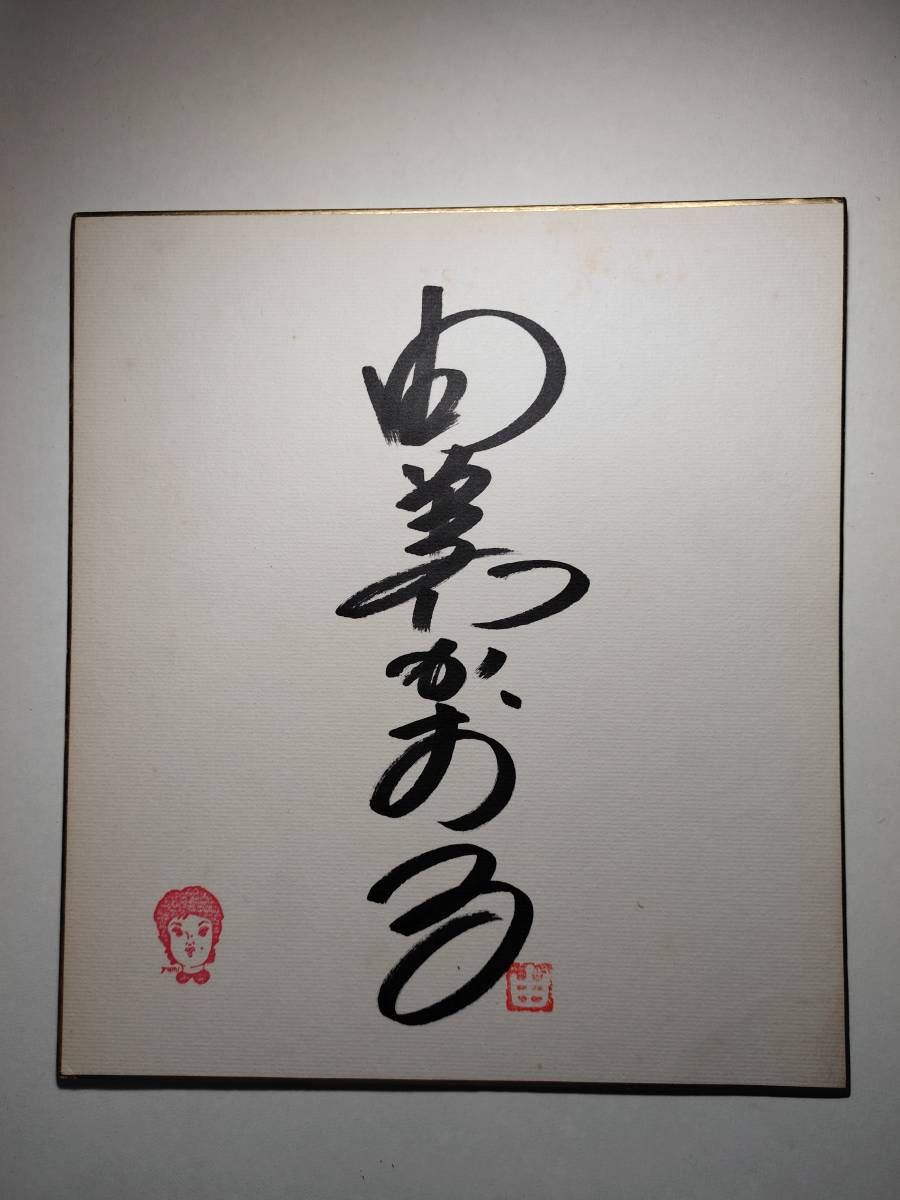 由美かおる
yumi
由